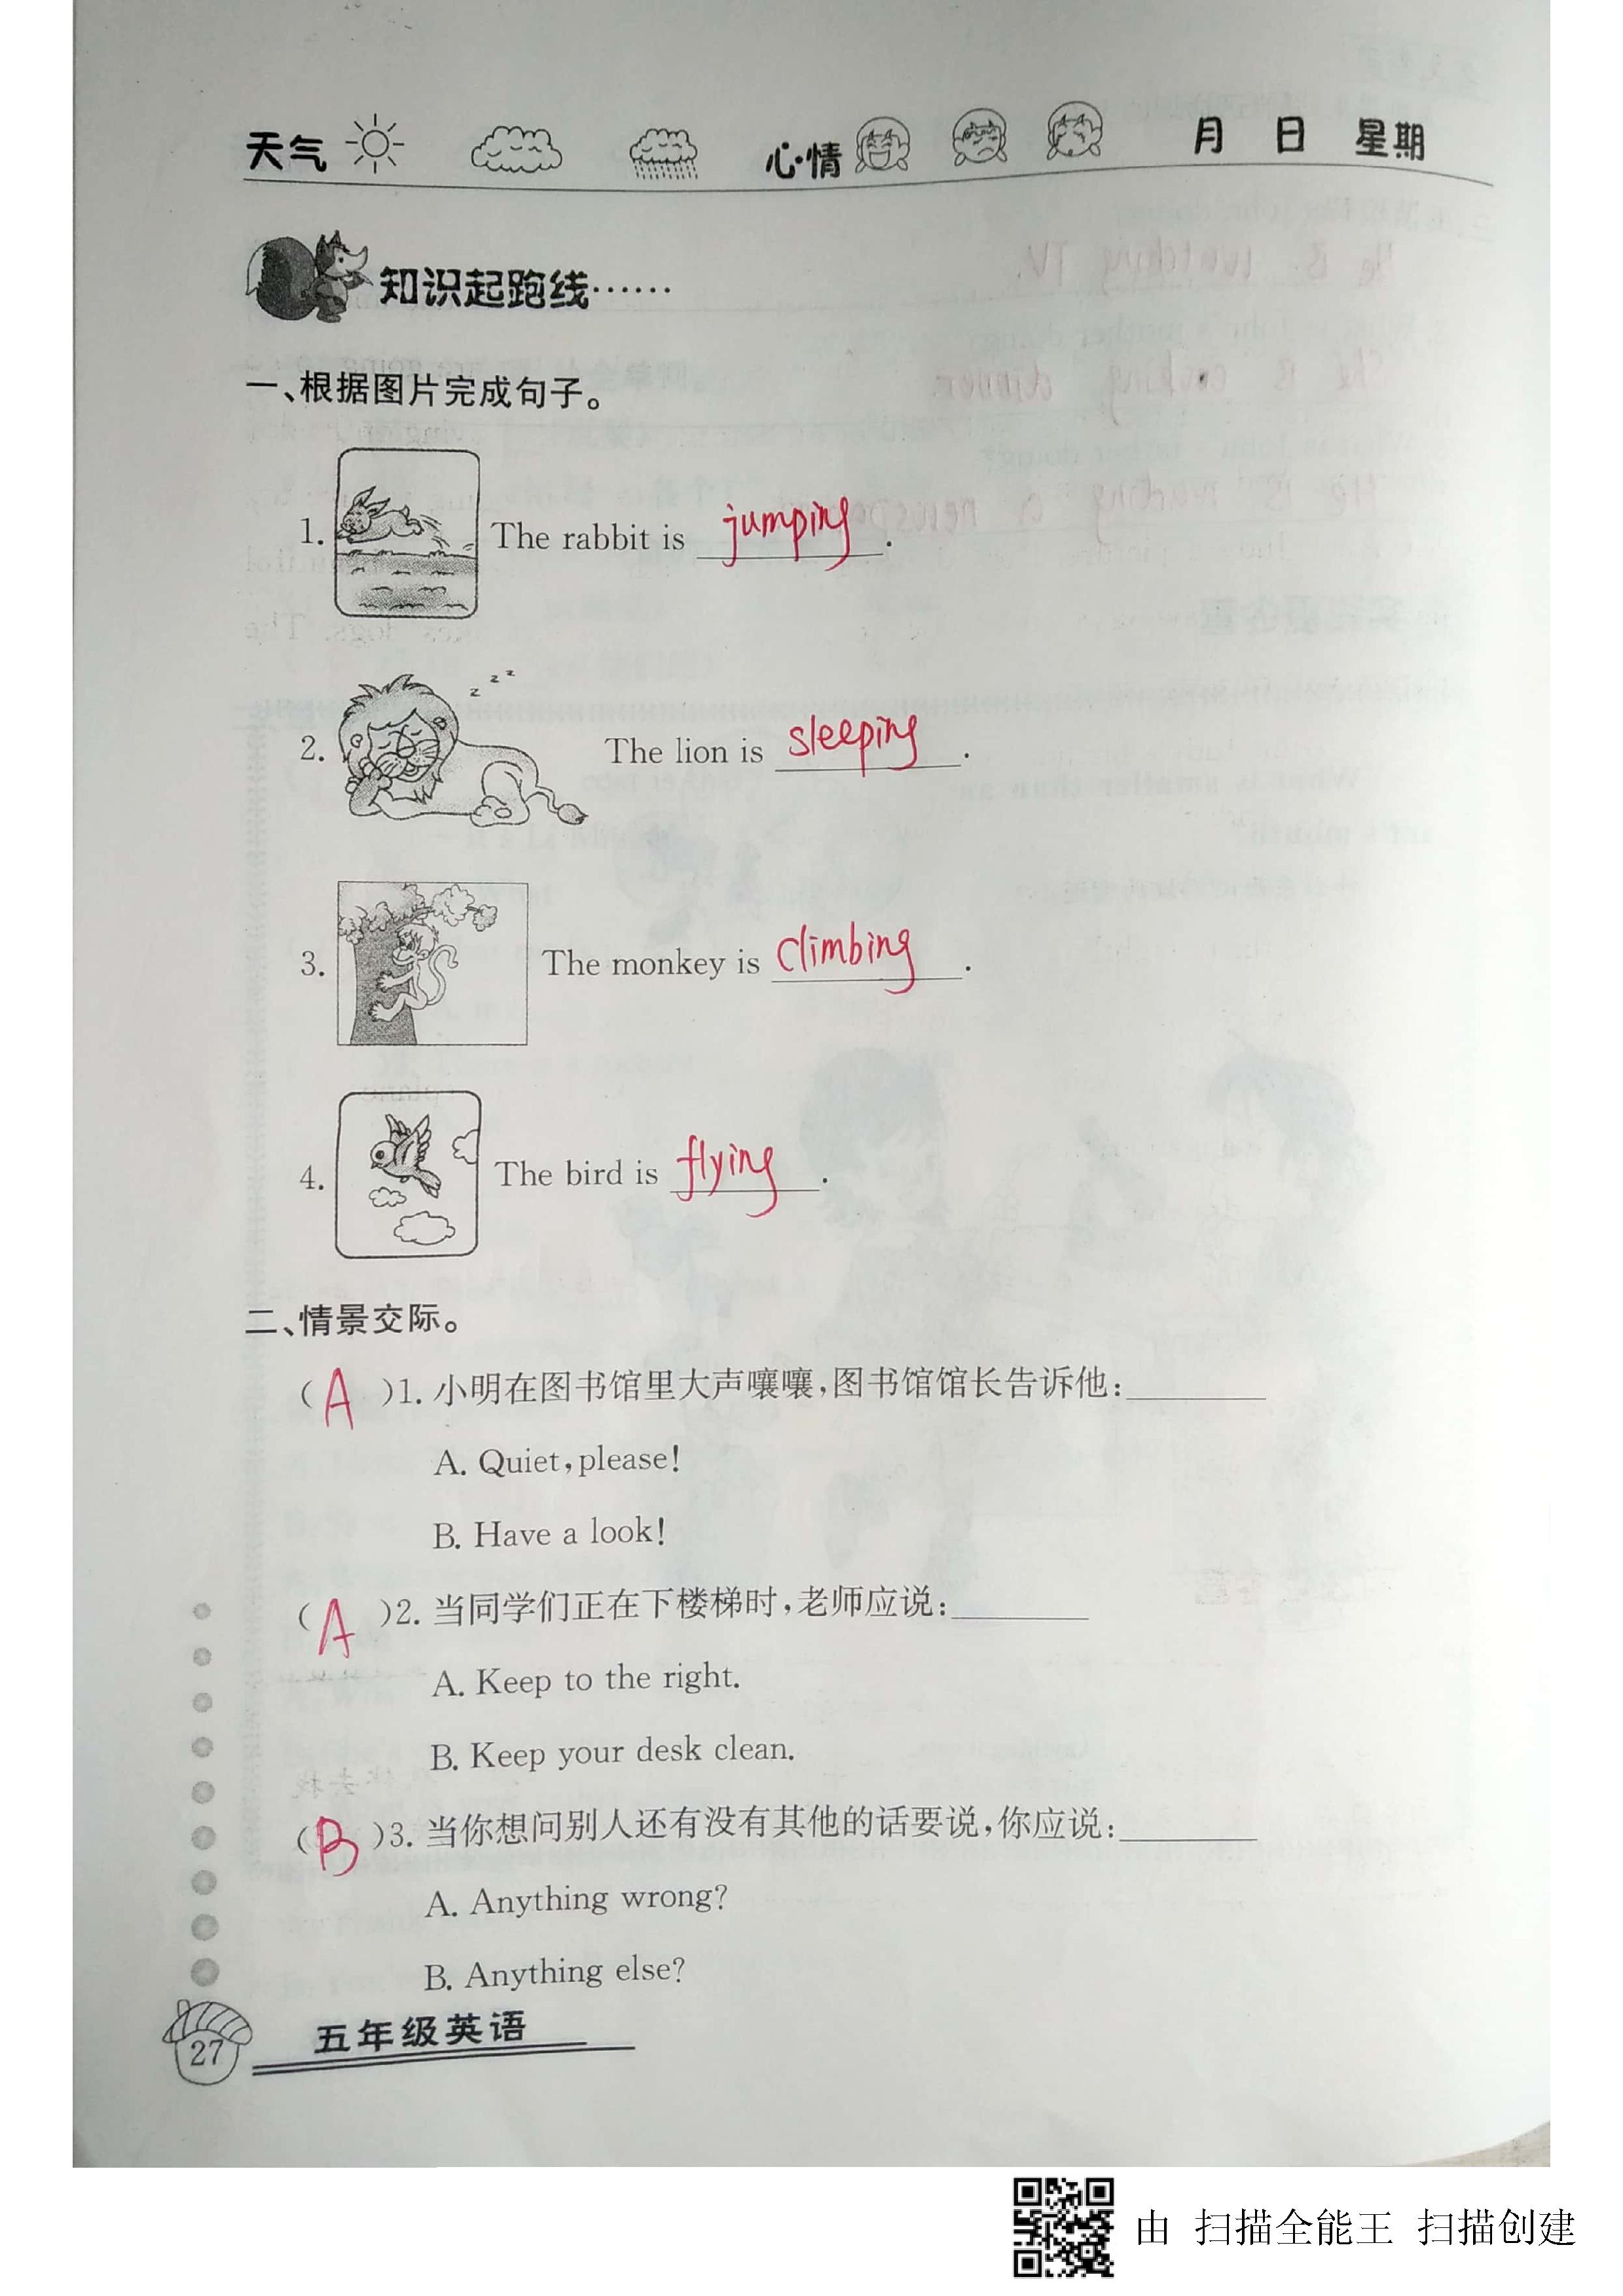 天气 心情 月 日 星期
知识起跑线……
一、根据图片完成句子。
1. The rabbit is jumping.
z z z
2. The lion is sleeping.
3. The monkey is climbing.
4. The bird is flying.
二、情景交际。
(A)1. 小明在图书馆里大声嚷嚷,图书馆馆长告诉他:________
A. Quiet,please!
B. Have a look!
(A)2. 当同学们正在下楼梯时,老师应说:________
A. Keep to the right.
B. Keep your desk clean.
(B)3. 当你想问别人还有没有其他的话要说,你应说:________
A. Anything wrong?
B. Anything else?
27 五年级英语
由 扫描全能王 扫描创建